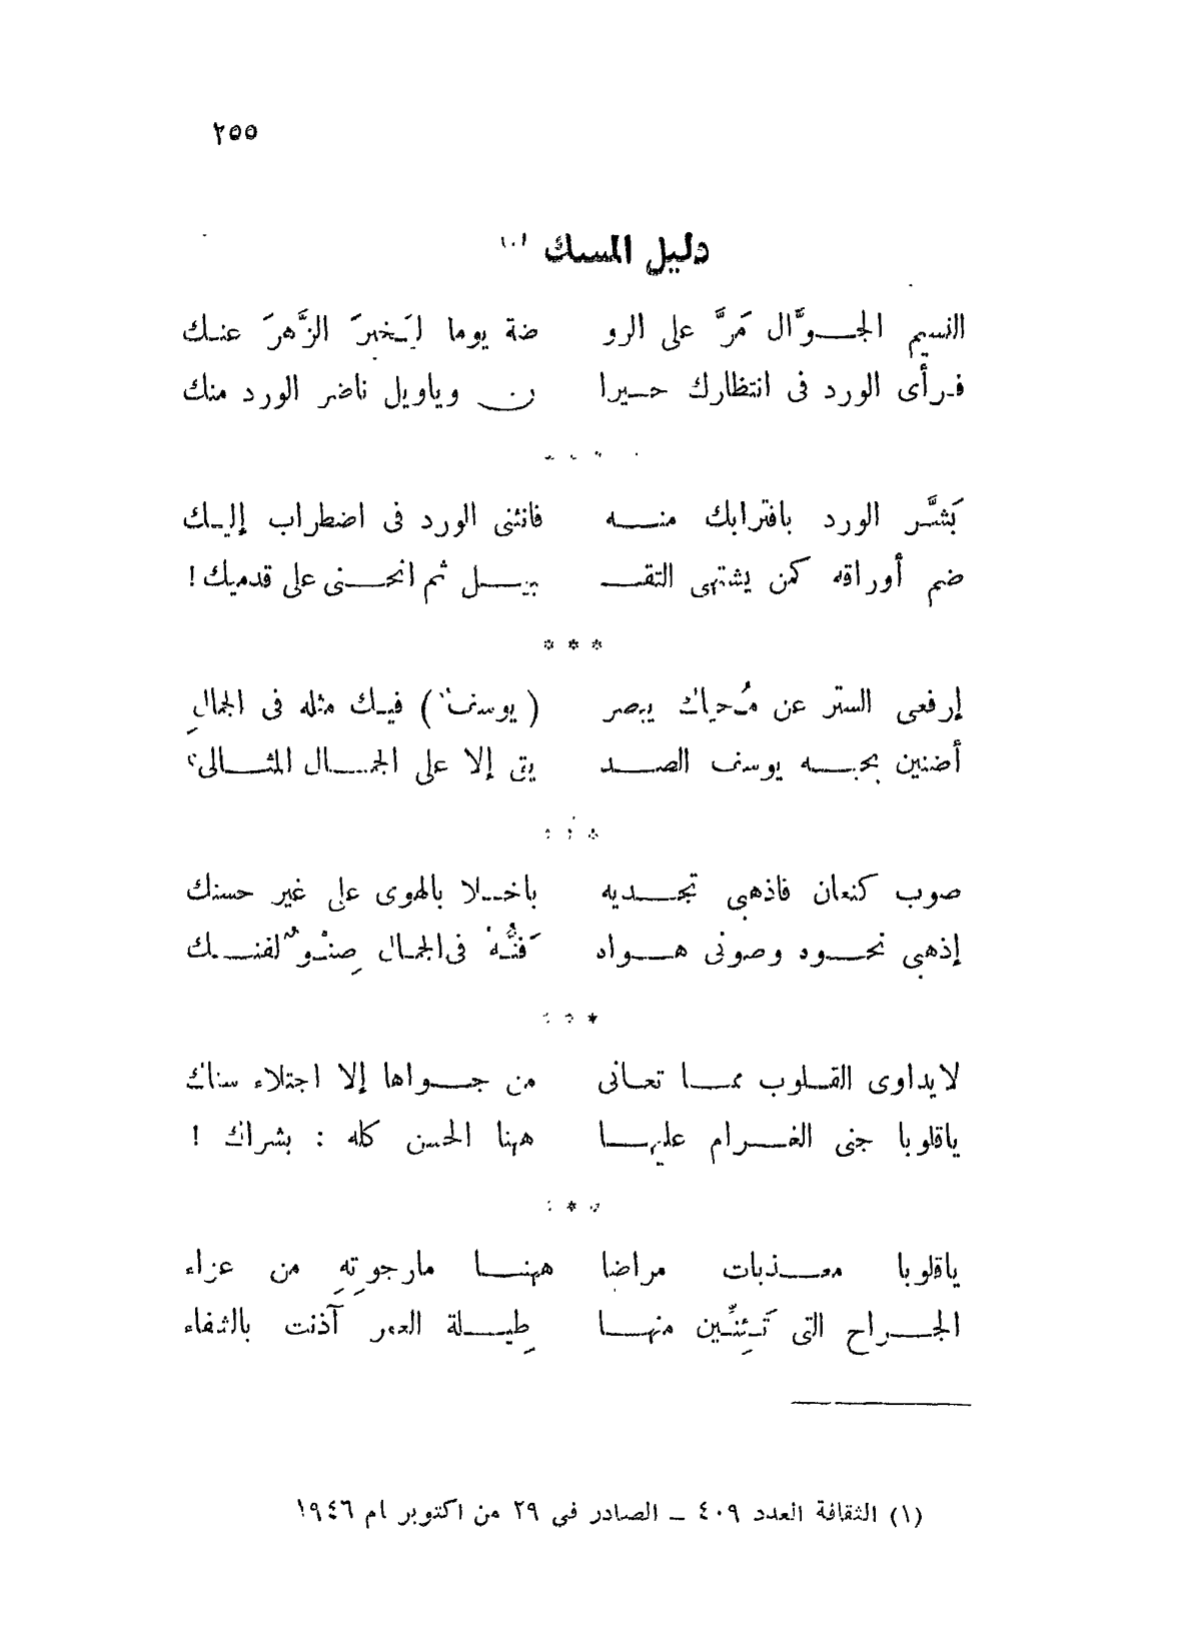 ٢٥٥
دليل المسك (١)
النسيم الجــوَّال مَرَّ على الرو ضة يوما لـيَـخبرَ الزَّهرَ عنـك
فـرأى الورد فى انتظارك حـيرا ن وياويل ناضر الورد منك
بَشَّـر الورد باقترابك منــه فانثنى الورد فى اضطراب إليـك
ضم أوراقه كمن يشتهى التقــ بيــل ثم انحــنى على قدميك !
* * *
إرفعى الستر عن مُـحياك يبصر ( يوسف ) فيـك مثله فى الجمالِ
أضنين بحبــه يوسف الصــد يق إلا على الجمــال المثــالى؟
* * *
صوب كنعان فاذهبى تجــديه باخــلا بالهوى على غير حسنك
إذهبى نحــوه وصونى هــواه فَنُّـه فى الجمـال صِنْـوٌ لفنــك
* * *
لايداوى القـلوب ممــا تعـانى من جــواها إلا اجتلاء سناك
ياقلوبا جنى الغــرام عليهــا ههنا الحسن كله : بشراك !
* * *
ياقلوبا معــذبات مراضا ههنــا مارجوتِهِ من عزاء
الجــراح التى تَـئِنِّـين منهــا طِيــلة العمر آذنت بالشفاء
(١) الثقافة العدد ٤٠٩ ــ الصادر في ٢٩ من اكتوبر ام ١٩٤٦